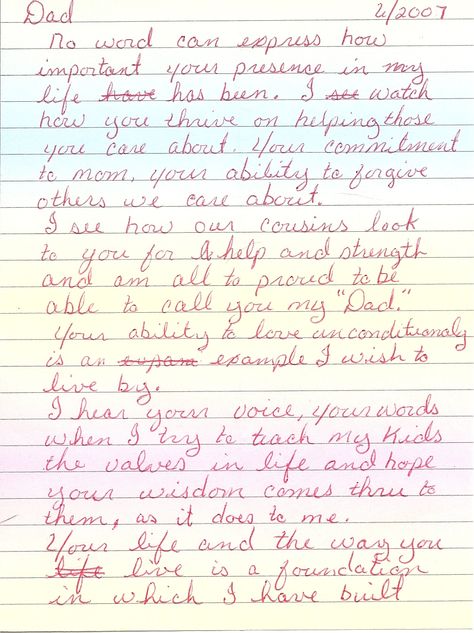 Dad 6/2007
No word can express how
important your presence in my
life have has been. I see watch
how you thrive on helping those
you care about. Your commitment
to mom, your ability to forgive
others we care about.
I see how our cousins look
to you for help and strength
and am all to proud to be
able to call you my "Dad."
Your ability to love unconditionaly
is an example I wish to
live by.
I hear your voice, your words
when I try to teach my kids
the valves in life and hope
your wisdom comes thru to
them, as it does to me.
Your life and the way you
life live is a foundation
in which I have built